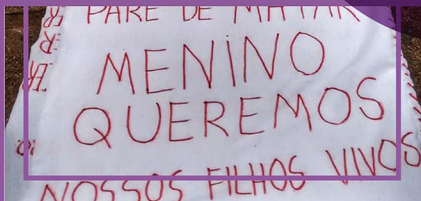 PARE DE MATAR
MENINO
QUEREMOS
NOSSOS FILHOS VIVOS